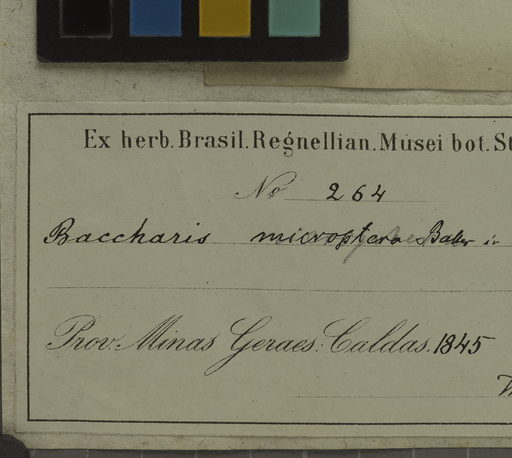 Ex herb. Brasil. Regnellian. Musei bot. St
No 264
Baccharis microptera Baker in
Prov. Minas Geraes: Caldas. 1845